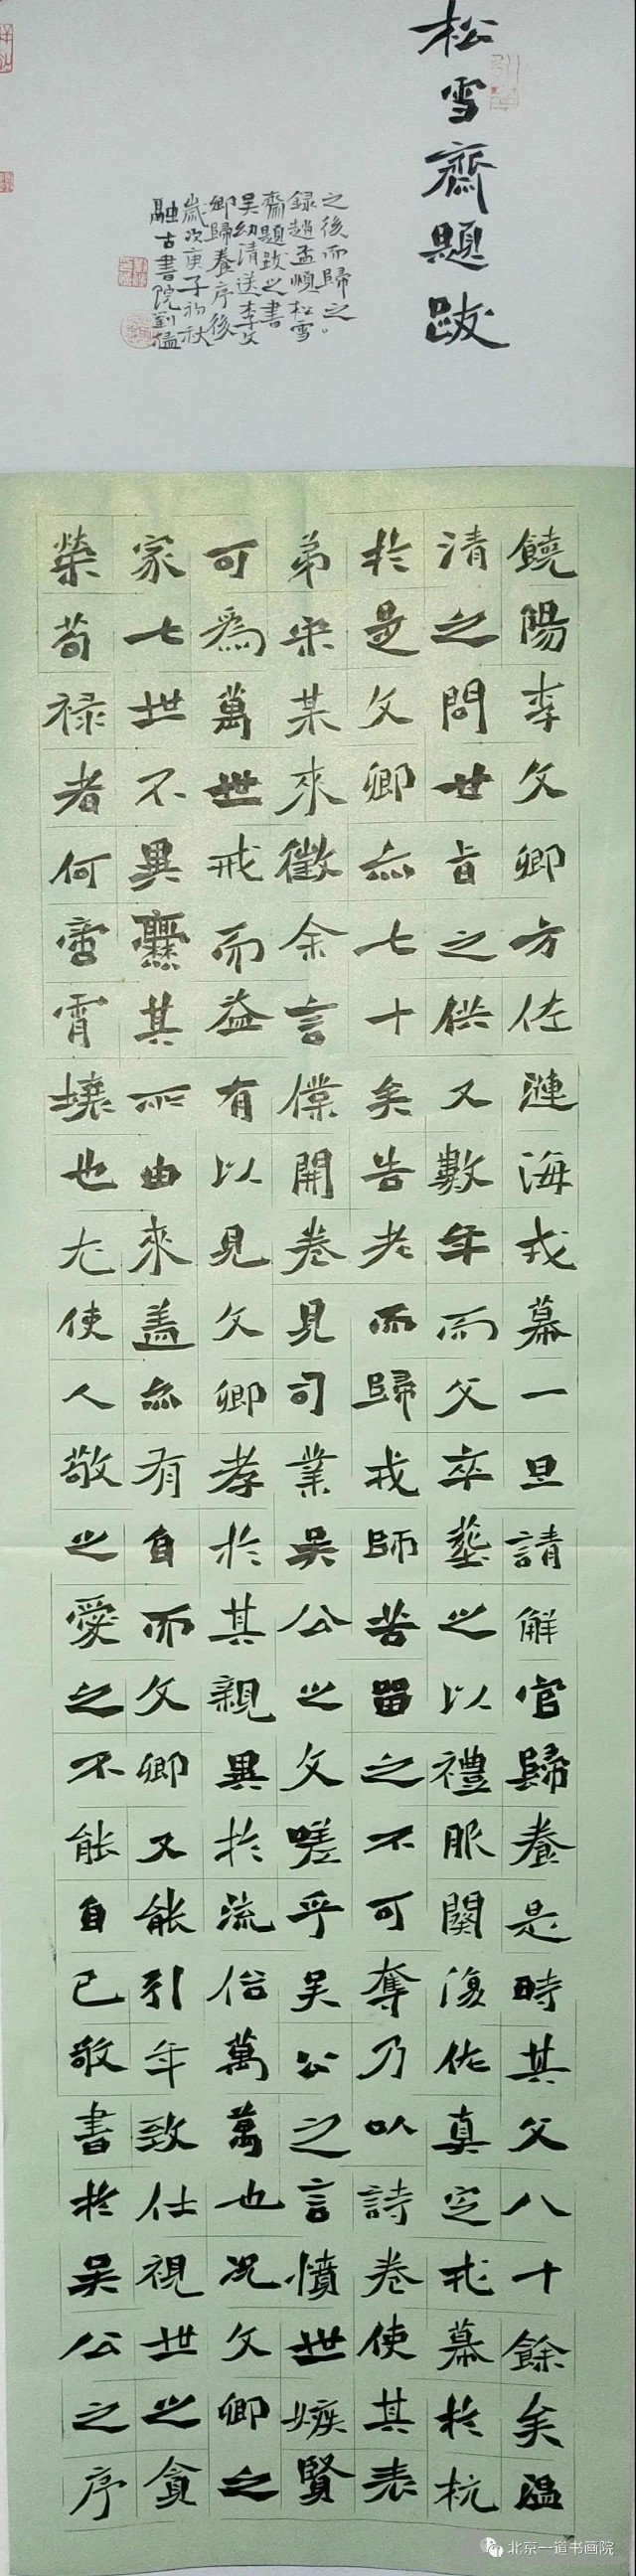 松雪齋題跋
饒陽李文卿方佐漣海戎幕一旦請解官歸養是時其父八十餘矣溫
清之問甘旨之供又數年而父卒葬之以禮服闋復佐真定戎幕於杭
於是文卿亦七十矣告老而歸戎師苦留之不可奪乃以詩卷使其表
弟某來徵余言僕開卷見司業吳公之文嗟乎吳公之言憤世嫉賢
可為萬世戒而益有以見文卿孝於其親異於流俗萬萬也況文卿之
家七世不異爨其所由來蓋亦有自而文卿又能引年致仕視世之貪
榮苟祿者何啻霄壤也尤使人敬之愛之不能自已敬書於吳公之序
之後而歸之。
錄趙孟頫松雪
齋題跋之書
吳幼清送李文
卿歸養序後
歲次庚子初秋
融古書院劉猛
北京一道书画院